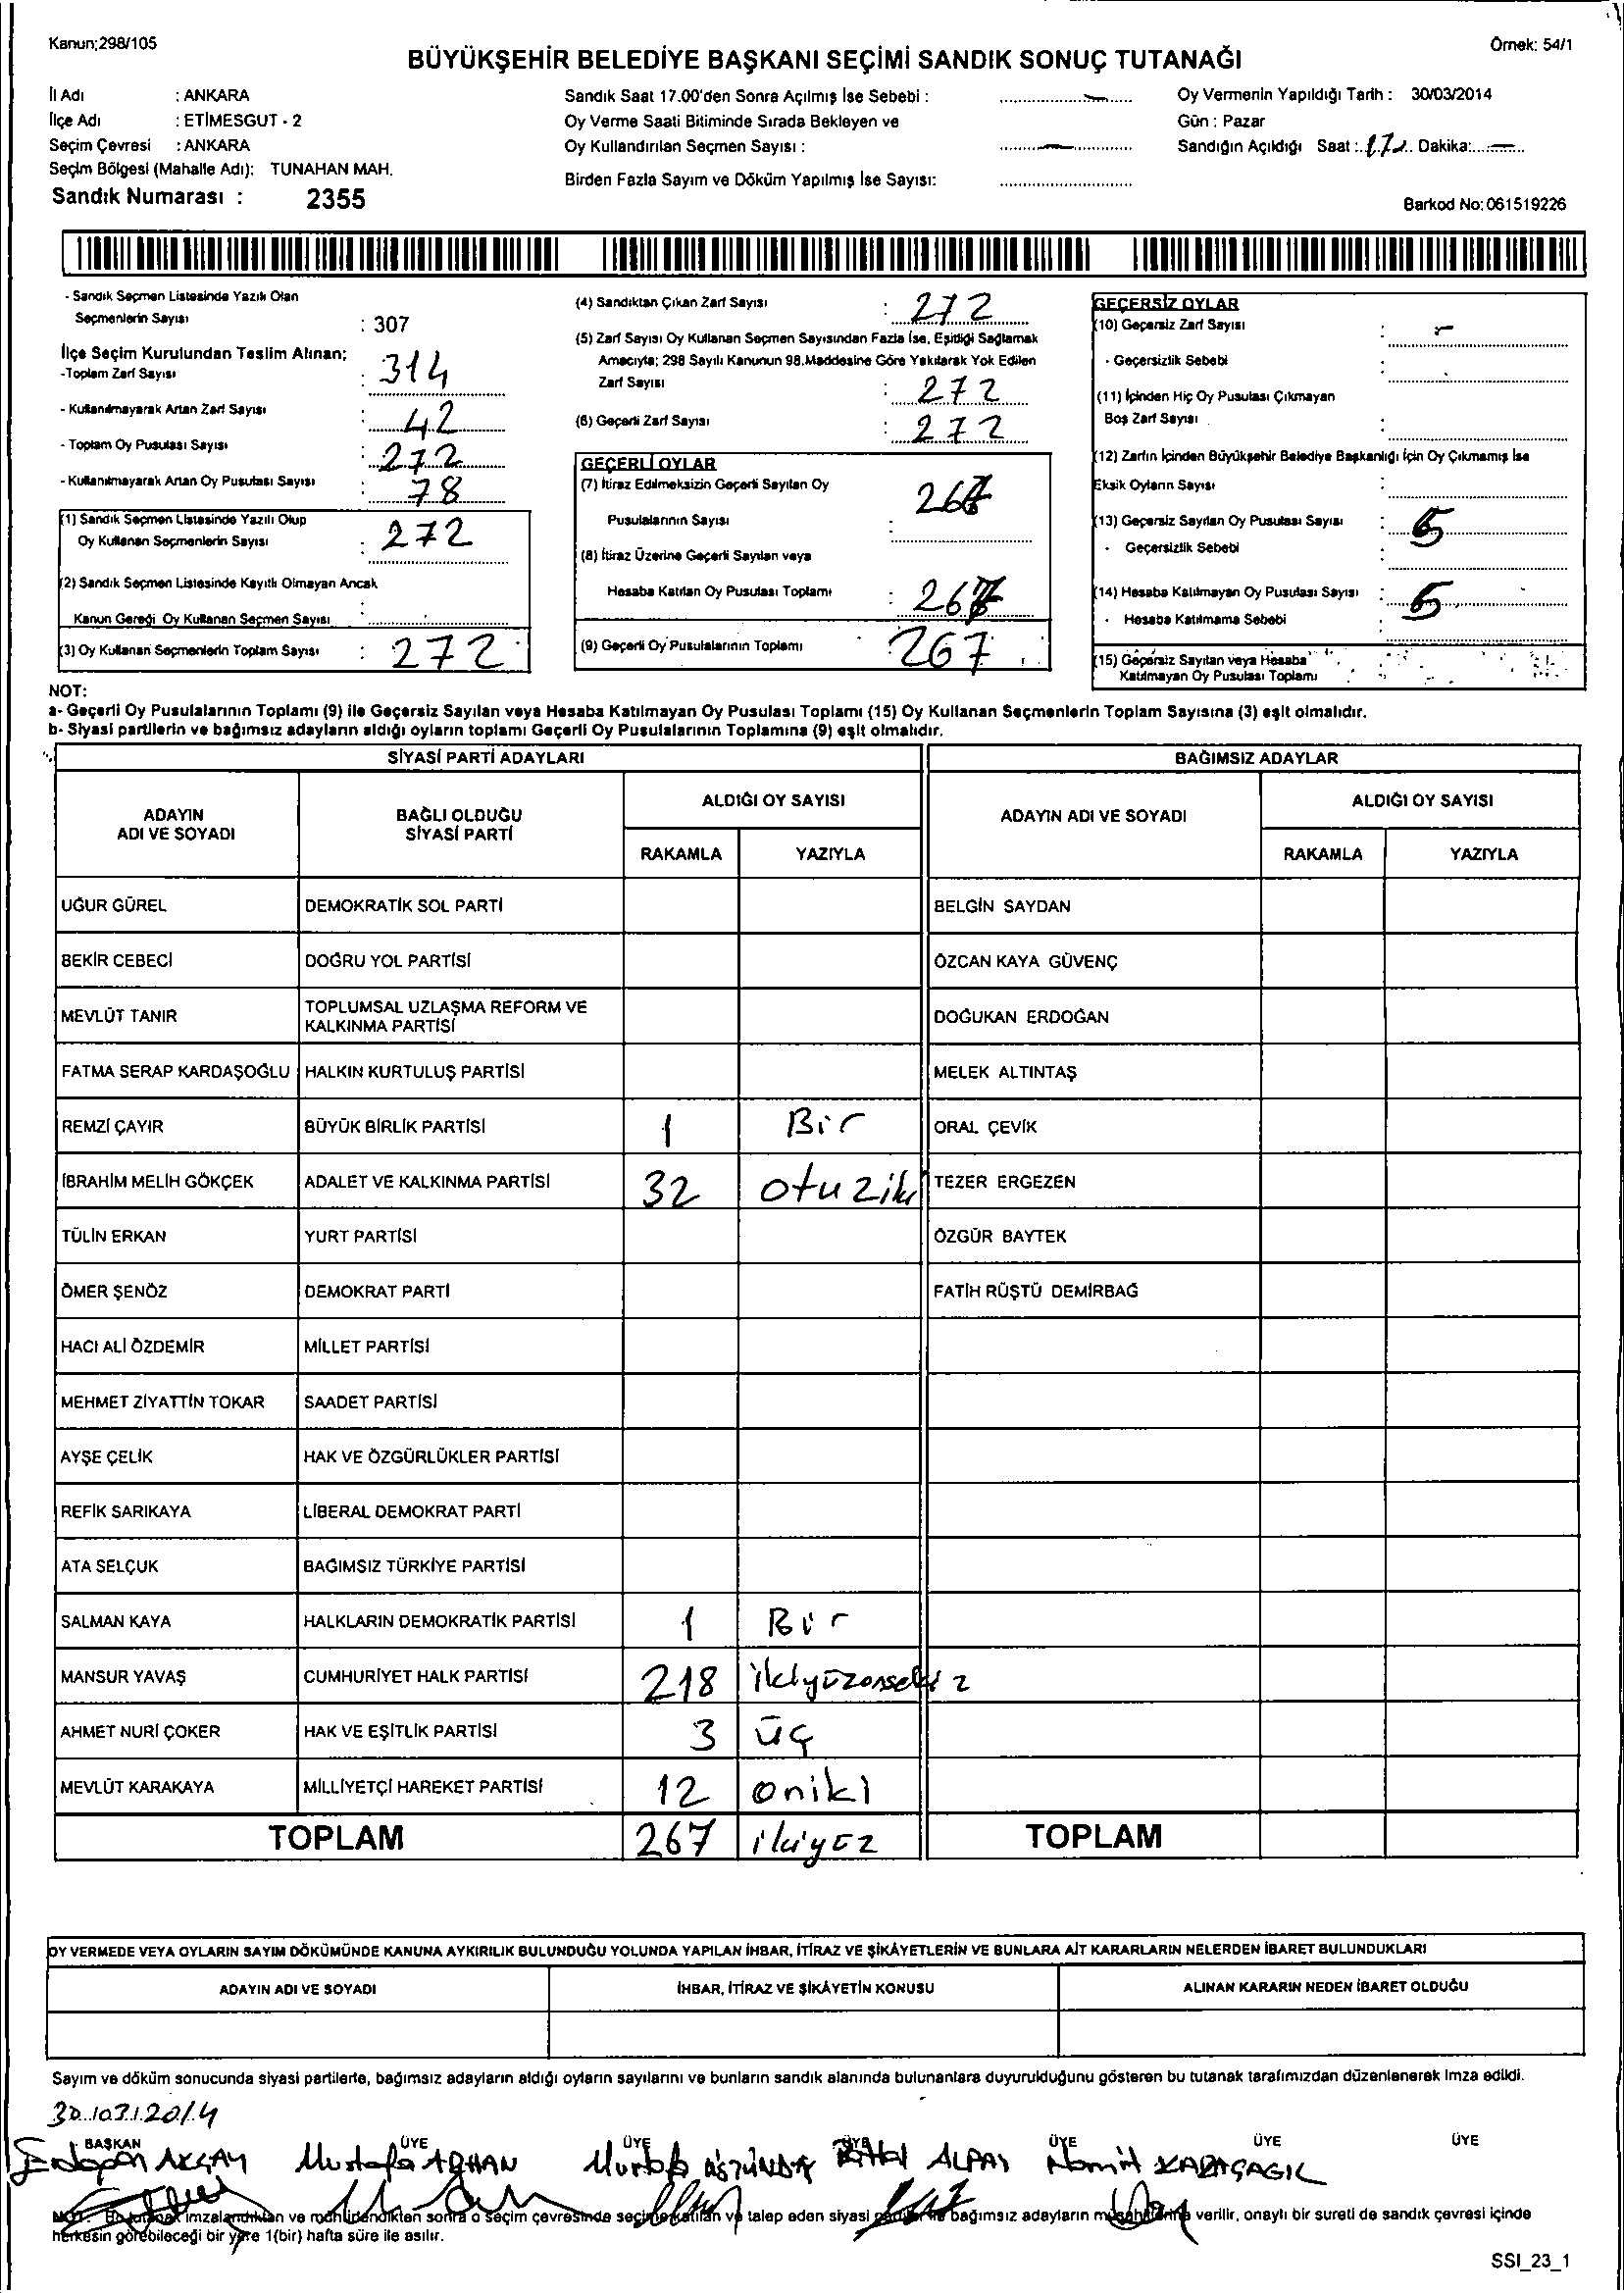 Kanun;298/105
BÜYÜKŞEHİR BELEDİYE BAŞKANI SEÇİMİ SANDIK SONUÇ TUTANAĞI
Örnek: 54/1
İl Adı : ANKARA
İlçe Adı : ETİMESGUT - 2
Seçim Çevresi : ANKARA
Seçim Bölgesi (Mahalle Adı): TUNAHAN MAH.
Sandık Numarası : 2355
Sandık Saat 17.00'den Sonra Açılmış İse Sebebi :
Oy Verme Saati Bitiminde Sırada Bekleyen ve
Oy Kullandırılan Seçmen Sayısı :
Birden Fazla Sayım ve Döküm Yapılmış İse Sayısı:
Oy Vermenin Yapıldığı Tarih : 30/03/2014
Gün : Pazar
Sandığın Açıldığı Saat : Dakika:
Barkod No: 061519226
- Sandık Seçmen Listesinde Yazılı Olan
Seçmenlerin Sayısı : 307
İlçe Seçim Kurulundan Teslim Alınan;
-Toplam Zarf Sayısı : 314
- Kullanılmayarak Artan Zarf Sayısı : 42
- Toplam Oy Pusulası Sayısı : 272
- Kullanılmayarak Artan Oy Pusulası Sayısı : 78
(1) Sandık Seçmen Listesinde Yazılı Olup
Oy Kullanan Seçmenlerin Sayısı : 272
(2) Sandık Seçmen Listesinde Kayıtlı Olmayan Ancak
Kanun Gereği Oy Kullanan Seçmen Sayısı :
(3) Oy Kullanan Seçmenlerin Toplam Sayısı : 272
(4) Sandıktan Çıkan Zarf Sayısı : 272
(5) Zarf Sayısı Oy Kullanan Seçmen Sayısından Fazla İse, Eşitliği Sağlamak
Amacıyla; 298 Sayılı Kanunun 98.Maddesine Göre Yakılarak Yok Edilen
Zarf Sayısı : 272
(6) Geçerli Zarf Sayısı : 272
GEÇERLİ OYLAR
(7) İtiraz Edilmeksizin Geçerli Sayılan Oy
Pusulalarının Sayısı : 267
(8) İtiraz Üzerine Geçerli Sayılan veya
Hesaba Katılan Oy Pusulası Toplamı : 267
(9) Geçerli Oy Pusulalarının Toplamı : 267
GEÇERSİZ OYLAR
(10) Geçersiz Zarf Sayısı : -
- Geçersizlik Sebebi :
(11) İçinden Hiç Oy Pusulası Çıkmayan
Boş Zarf Sayısı :
(12) Zarfın İçinden Büyükşehir Belediye Başkanlığı İçin Oy Çıkmamış İse
Eksik Oyların Sayısı :
(13) Geçersiz Sayılan Oy Pusulası Sayısı : 5
- Geçersizlik Sebebi :
(14) Hesaba Katılmayan Oy Pusulası Sayısı : 5
- Hesaba Katılmama Sebebi :
(15) Geçersiz Sayılan veya Hesaba
Katılmayan Oy Pusulası Toplamı
NOT:
a- Geçerli Oy Pusulalarının Toplamı (9) ile Geçersiz Sayılan veya Hesaba Katılmayan Oy Pusulası Toplamı (15) Oy Kullanan Seçmenlerin Toplam Sayısına (3) eşit olmalıdır.
b- Siyasi partilerin ve bağımsız adayların aldığı oyların toplamı Geçerli Oy Pusulalarının Toplamına (9) eşit olmalıdır.
SİYASİ PARTİ ADAYLARI BAĞIMSIZ ADAYLAR
ADAYIN ADI VE SOYADI BAĞLI OLDUĞU SİYASİ PARTİ ALDIĞI OY SAYISI ADAYIN ADI VE SOYADI ALDIĞI OY SAYISI
RAKAMLA YAZIYLA RAKAMLA YAZIYLA
UĞUR GÜREL DEMOKRATİK SOL PARTİ BELGİN SAYDAN
BEKİR CEBECİ DOĞRU YOL PARTİSİ ÖZCAN KAYA GÜVENÇ
MEVLÜT TANIR TOPLUMSAL UZLAŞMA REFORM VE KALKINMA PARTİSİ DOĞUKAN ERDOĞAN
FATMA SERAP KARDAŞOĞLU HALKIN KURTULUŞ PARTİSİ MELEK ALTINTAŞ
REMZİ ÇAYIR BÜYÜK BİRLİK PARTİSİ 1 Bir ORAL ÇEVİK
İBRAHİM MELİH GÖKÇEK ADALET VE KALKINMA PARTİSİ 32 otuziki TEZER ERGEZEN
TÜLİN ERKAN YURT PARTİSİ ÖZGÜR BAYTEK
ÖMER ŞENÖZ DEMOKRAT PARTİ FATİH RÜŞTÜ DEMİRBAĞ
HACI ALİ ÖZDEMİR MİLLET PARTİSİ
MEHMET ZİYATTİN TOKAR SAADET PARTİSİ
AYŞE ÇELİK HAK VE ÖZGÜRLÜKLER PARTİSİ
REFİK SARIKAYA LİBERAL DEMOKRAT PARTİ
ATA SELÇUK BAĞIMSIZ TÜRKİYE PARTİSİ
SALMAN KAYA HALKLARIN DEMOKRATİK PARTİSİ 1 Bir
MANSUR YAVAŞ CUMHURİYET HALK PARTİSİ 218 ikiyüzonsekiz
AHMET NURİ ÇOKER HAK VE EŞİTLİK PARTİSİ 3 üç
MEVLÜT KARAKAYA MİLLİYETÇİ HAREKET PARTİSİ 12 oniki
TOPLAM 267 ikiyüz TOPLAM
OY VERMEDE VEYA OYLARIN SAYIM DÖKÜMÜNDE KANUNA AYKIRILIK BULUNDUĞU YOLUNDA YAPILAN İHBAR, İTİRAZ VE ŞİKÂYETLERİN VE BUNLARA AİT KARARLARIN NELERDEN İBARET BULUNDUKLARI
ADAYIN ADI VE SOYADI İHBAR, İTİRAZ VE ŞİKÂYETİN KONUSU ALINAN KARARIN NEDEN İBARET OLDUĞU
Sayım ve döküm sonucunda siyasi partilerle, bağımsız adayların aldığı oyların sayılarını ve bunların sandık alanında bulunanlara duyurulduğunu gösteren bu tutanak tarafımızdan düzenlenerek imza edildi.
30/03/2014
BAŞKAN ÜYE ÜYE ÜYE ÜYE ÜYE ÜYE
AKÇAY Mustafa ALPAY
NOT: Bu tutanak imzalandıktan ve mühürlendikten sonra o seçim çevresinde seçime katılan ve talep eden siyasi partiler ile bağımsız adayların müşahitlerine verilir, onaylı bir sureti de sandık çevresi içinde
herkesin görebileceği bir yere 1(bir) hafta süre ile asılır.
SSI_23_1